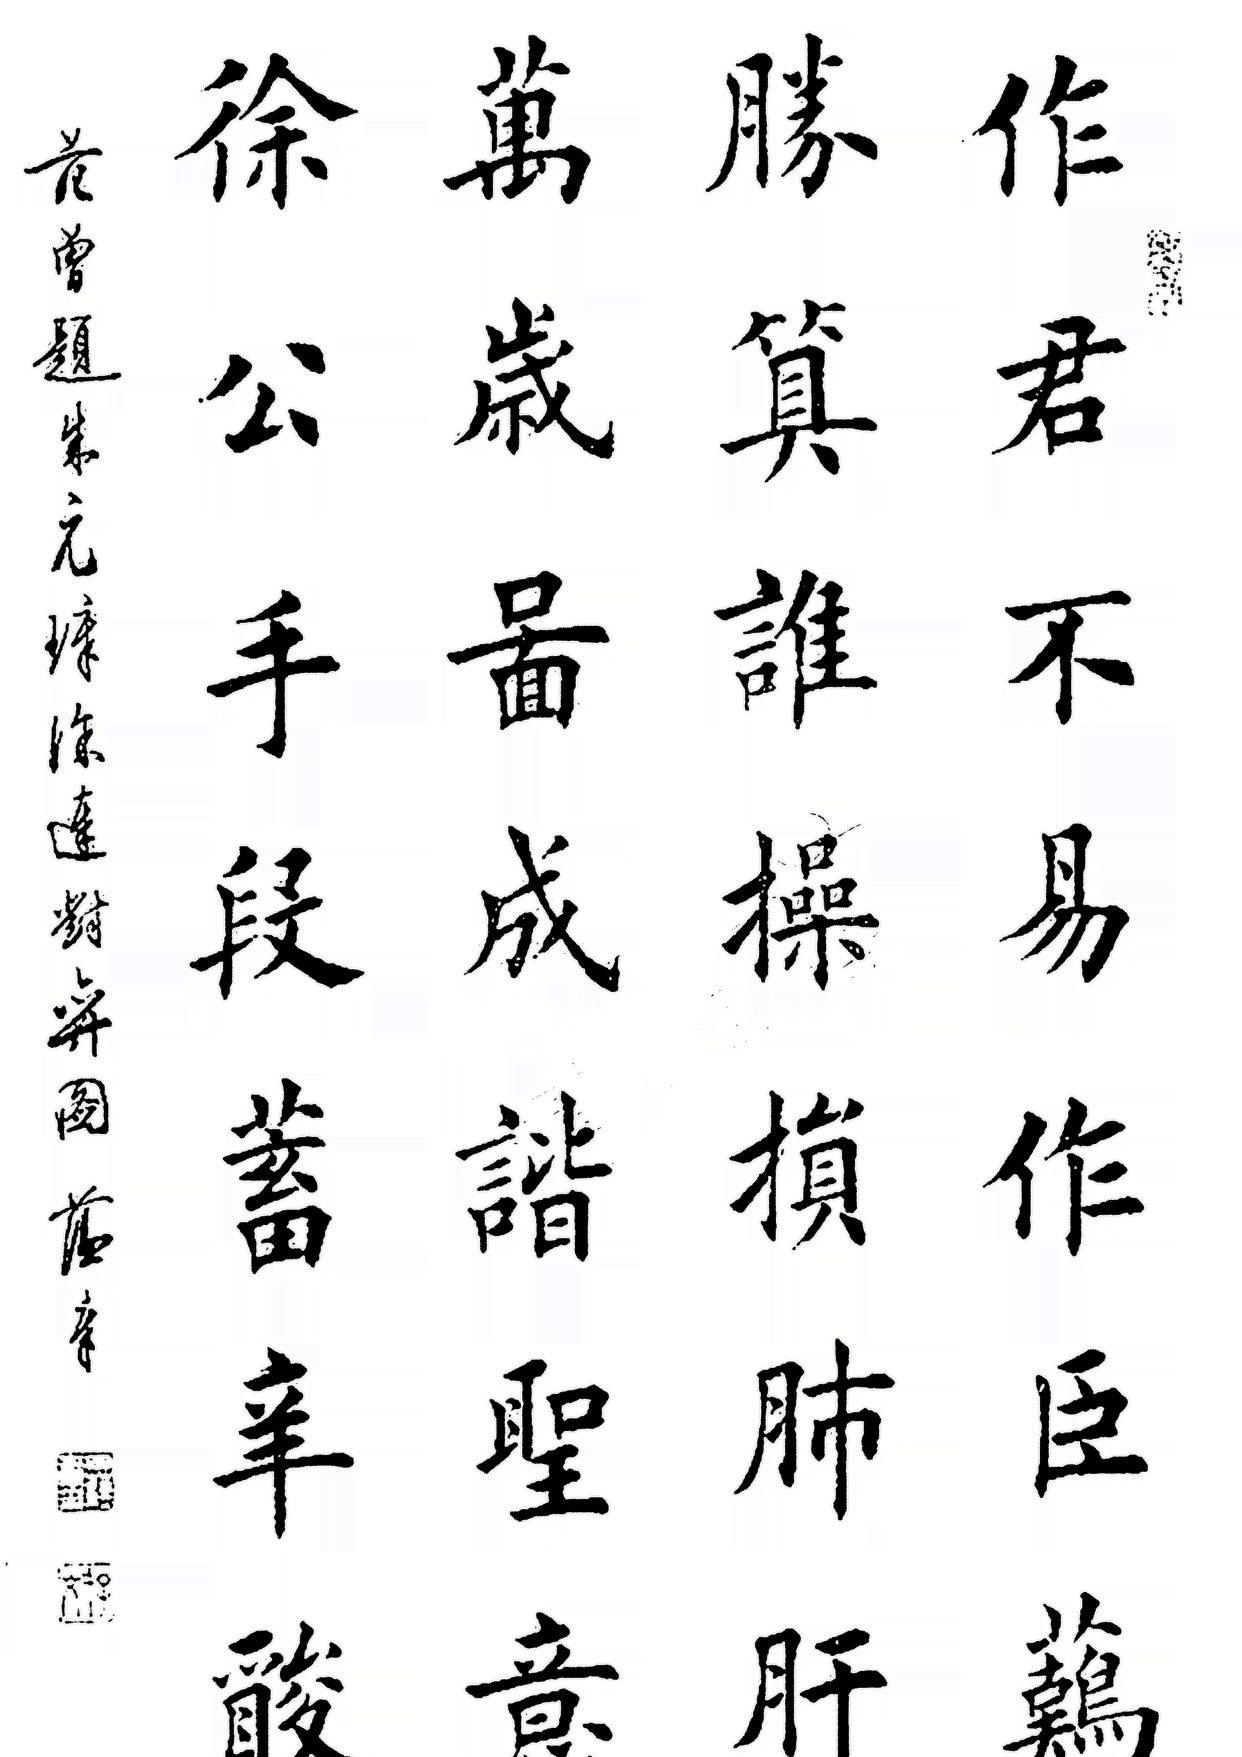 作君不易作臣鷄
勝算誰操損肺肝
萬歲啚成諧聖意
徐公手段蓄辛酸
范曾題朱元璋徐達對弈圖 薩辛